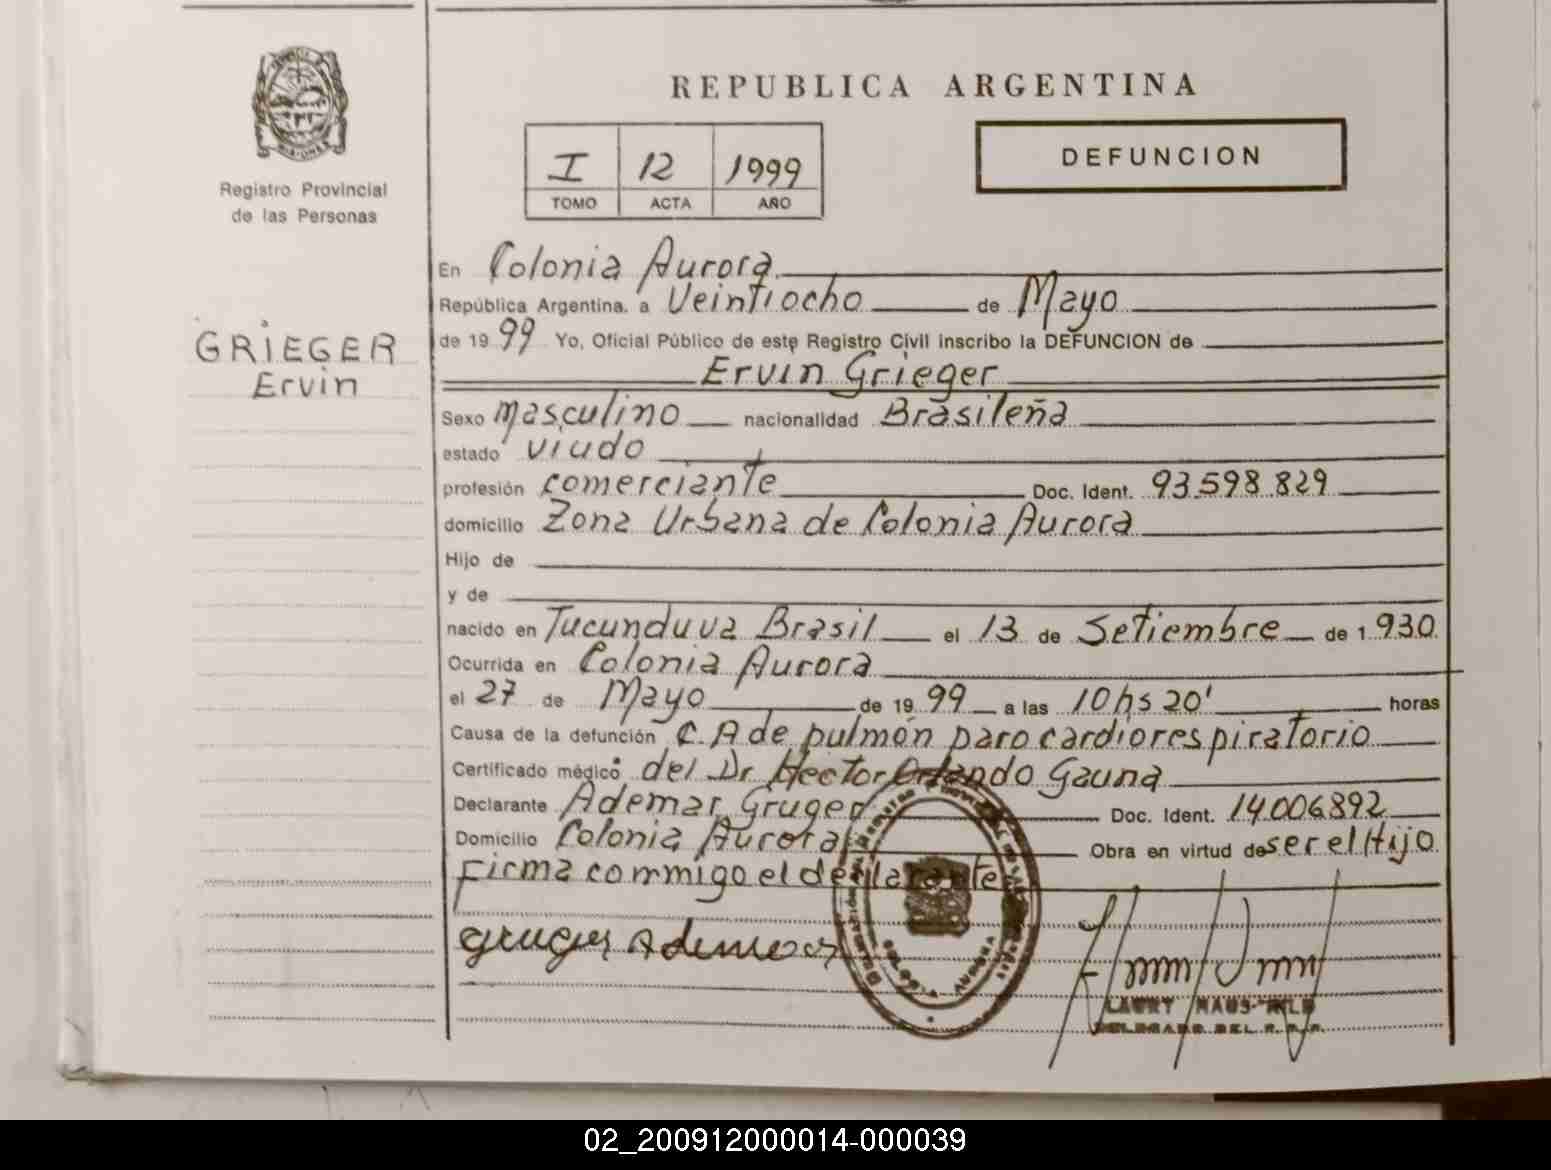 REPUBLICA ARGENTINA
PROVINCIA DE
MISIONES
Registro Provincial
de las Personas
I 12 1999
TOMO ACTA AÑO
DEFUNCION
GRIEGER
Ervin
En Colonia Aurora
República Argentina. a Veintiocho de Mayo
de 19 99 Yo, Oficial Público de este Registro Civil inscribo la DEFUNCION de
Ervin Grieger
Sexo masculino nacionalidad Brasileña
estado viudo
profesión comerciante Doc. Ident. 93.598.829
domicilio Zona Urbana de Colonia Aurora
Hijo de
y de
nacido en Tucunduva Brasil el 13 de Setiembre de 1.930
Ocurrida en Colonia Aurora
el 27 de Mayo de 19 99 a las 10hs 20' horas
Causa de la defunción C.A de pulmón paro cardiorespiratorio
Certificado médico del Dr Hector Orlando Gauna
Declarante Ademar Gruger Doc. Ident. 14006892
Domicilio Colonia Aurora Obra en virtud de ser el Hijo
Firma commigo el declarante
Gruger Ademar
DELEGADO DEL R.P.P.
02_200912000014-000039